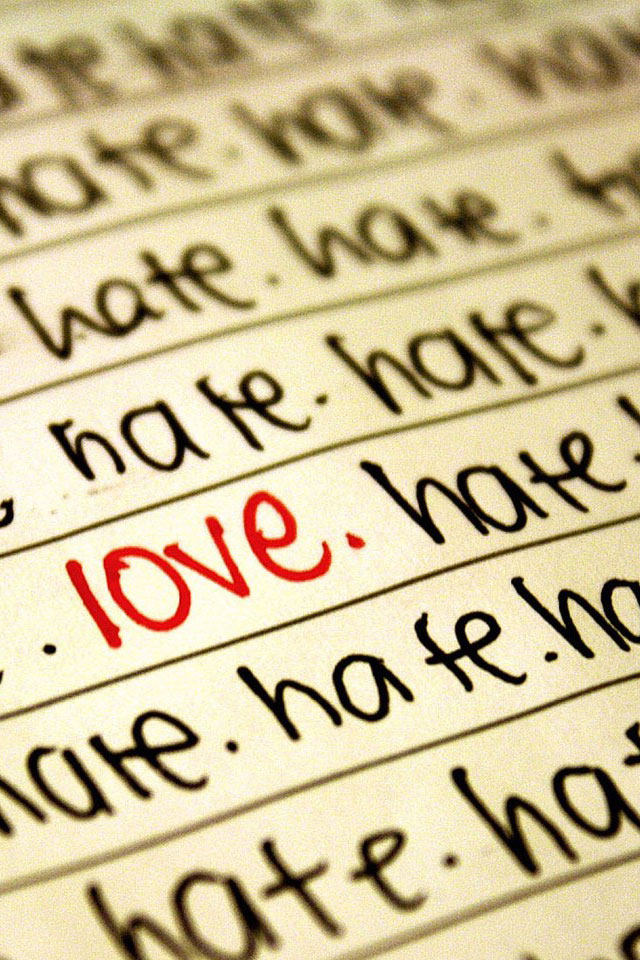 hate hate
hate. hate. ha
hate. hate.
hate. hate.
love. hate.
hate. hate. ha
hate. hat